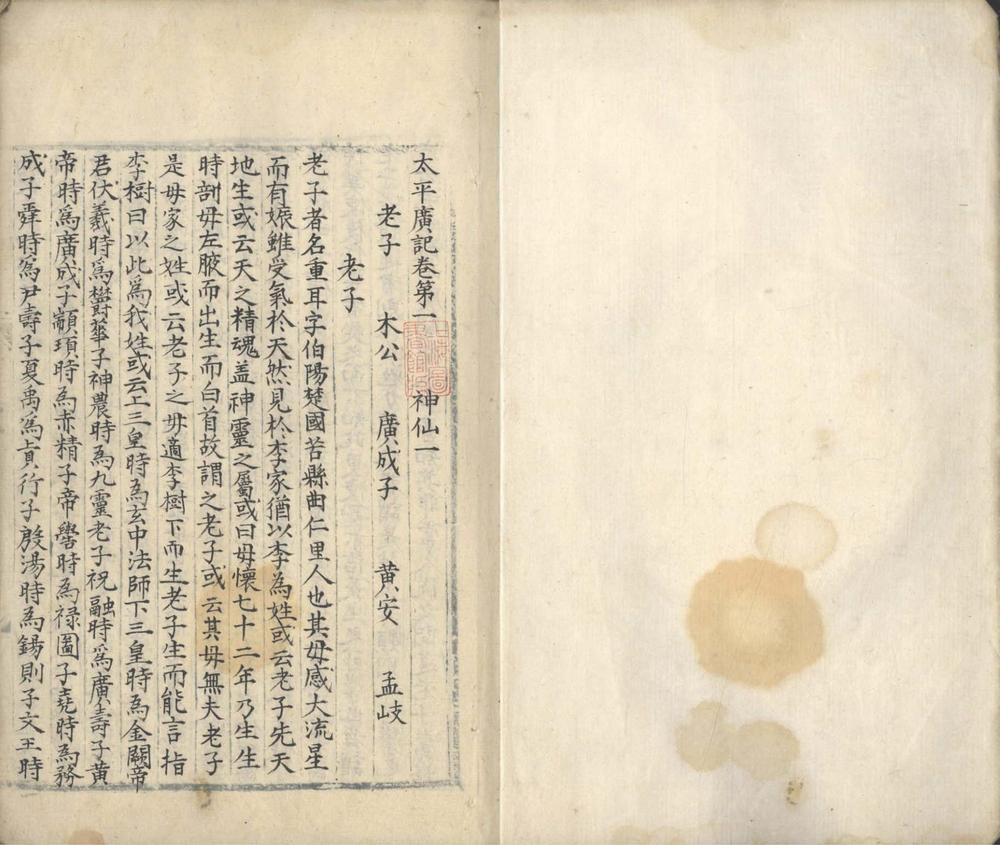 太平廣記卷第一　神仙一
老子　木公　廣成子　黄安　孟岐
老子
老子者名重耳字伯陽楚國苦縣曲仁里人也其母感大流星
而有娠雖受氣於天然見於李家猶以李為姓或云老子先天
地生或云天之精魂盖神靈之屬或曰母懷七十二年乃生生
時剖母左腋而出生而白首故謂之老子或云其母無夫老子
是母家之姓或云老子之母適李樹下而生老子生而能言指
李樹曰以此爲我姓或云上三皇時爲玄中法師下三皇時爲金闕帝
君伏羲時爲欝華子神農時爲九靈老子祝融時爲廣壽子黄
帝時爲廣成子顓頊時爲赤精子帝嚳時爲禄圖子堯時爲務
成子舜時爲尹壽子夏禹爲真行子殷湯時爲錫則子文王時